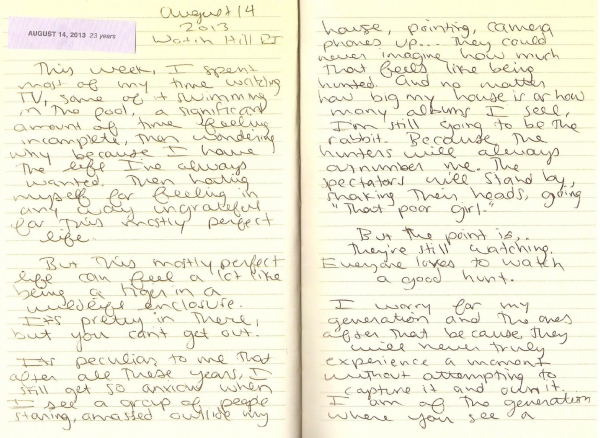 AUGUST 14, 2013 23 years
August 14
2013
Watch Hill RI
This week, I spent
most of my time watching
TV, some of it swimming
in the pool, a significant
amount of time feeling
incomplete, then wondering
why because I have
the life I've always
wanted. Then hating
myself for feeling in
any way ungrateful
for this mostly perfect
life.
But this mostly perfect
life can feel a lot like
being a tiger in a
wildlife enclosure.
It's pretty in there,
but you can't get out.
It's peculiar to me that
after all these years, I
still get so anxious when
I see a group of people
staring, amassed outside my
house, pointing, camera
phones up... They could
never imagine how much
that feels like being
hunted. And no matter
how big my house is or how
many albums I sell,
I'm still going to be the
rabbit. Because the
hunters will always
outnumber me. The
spectators will stand by,
shaking their heads, going
"that poor girl."
But the point is..
they're still watching.
Everyone loves to watch
a good hunt.
I worry for my
generation and the ones
after that because they
will never truly
experience a moment
without attempting to
capture it and own it.
I am of the generation
where you see a